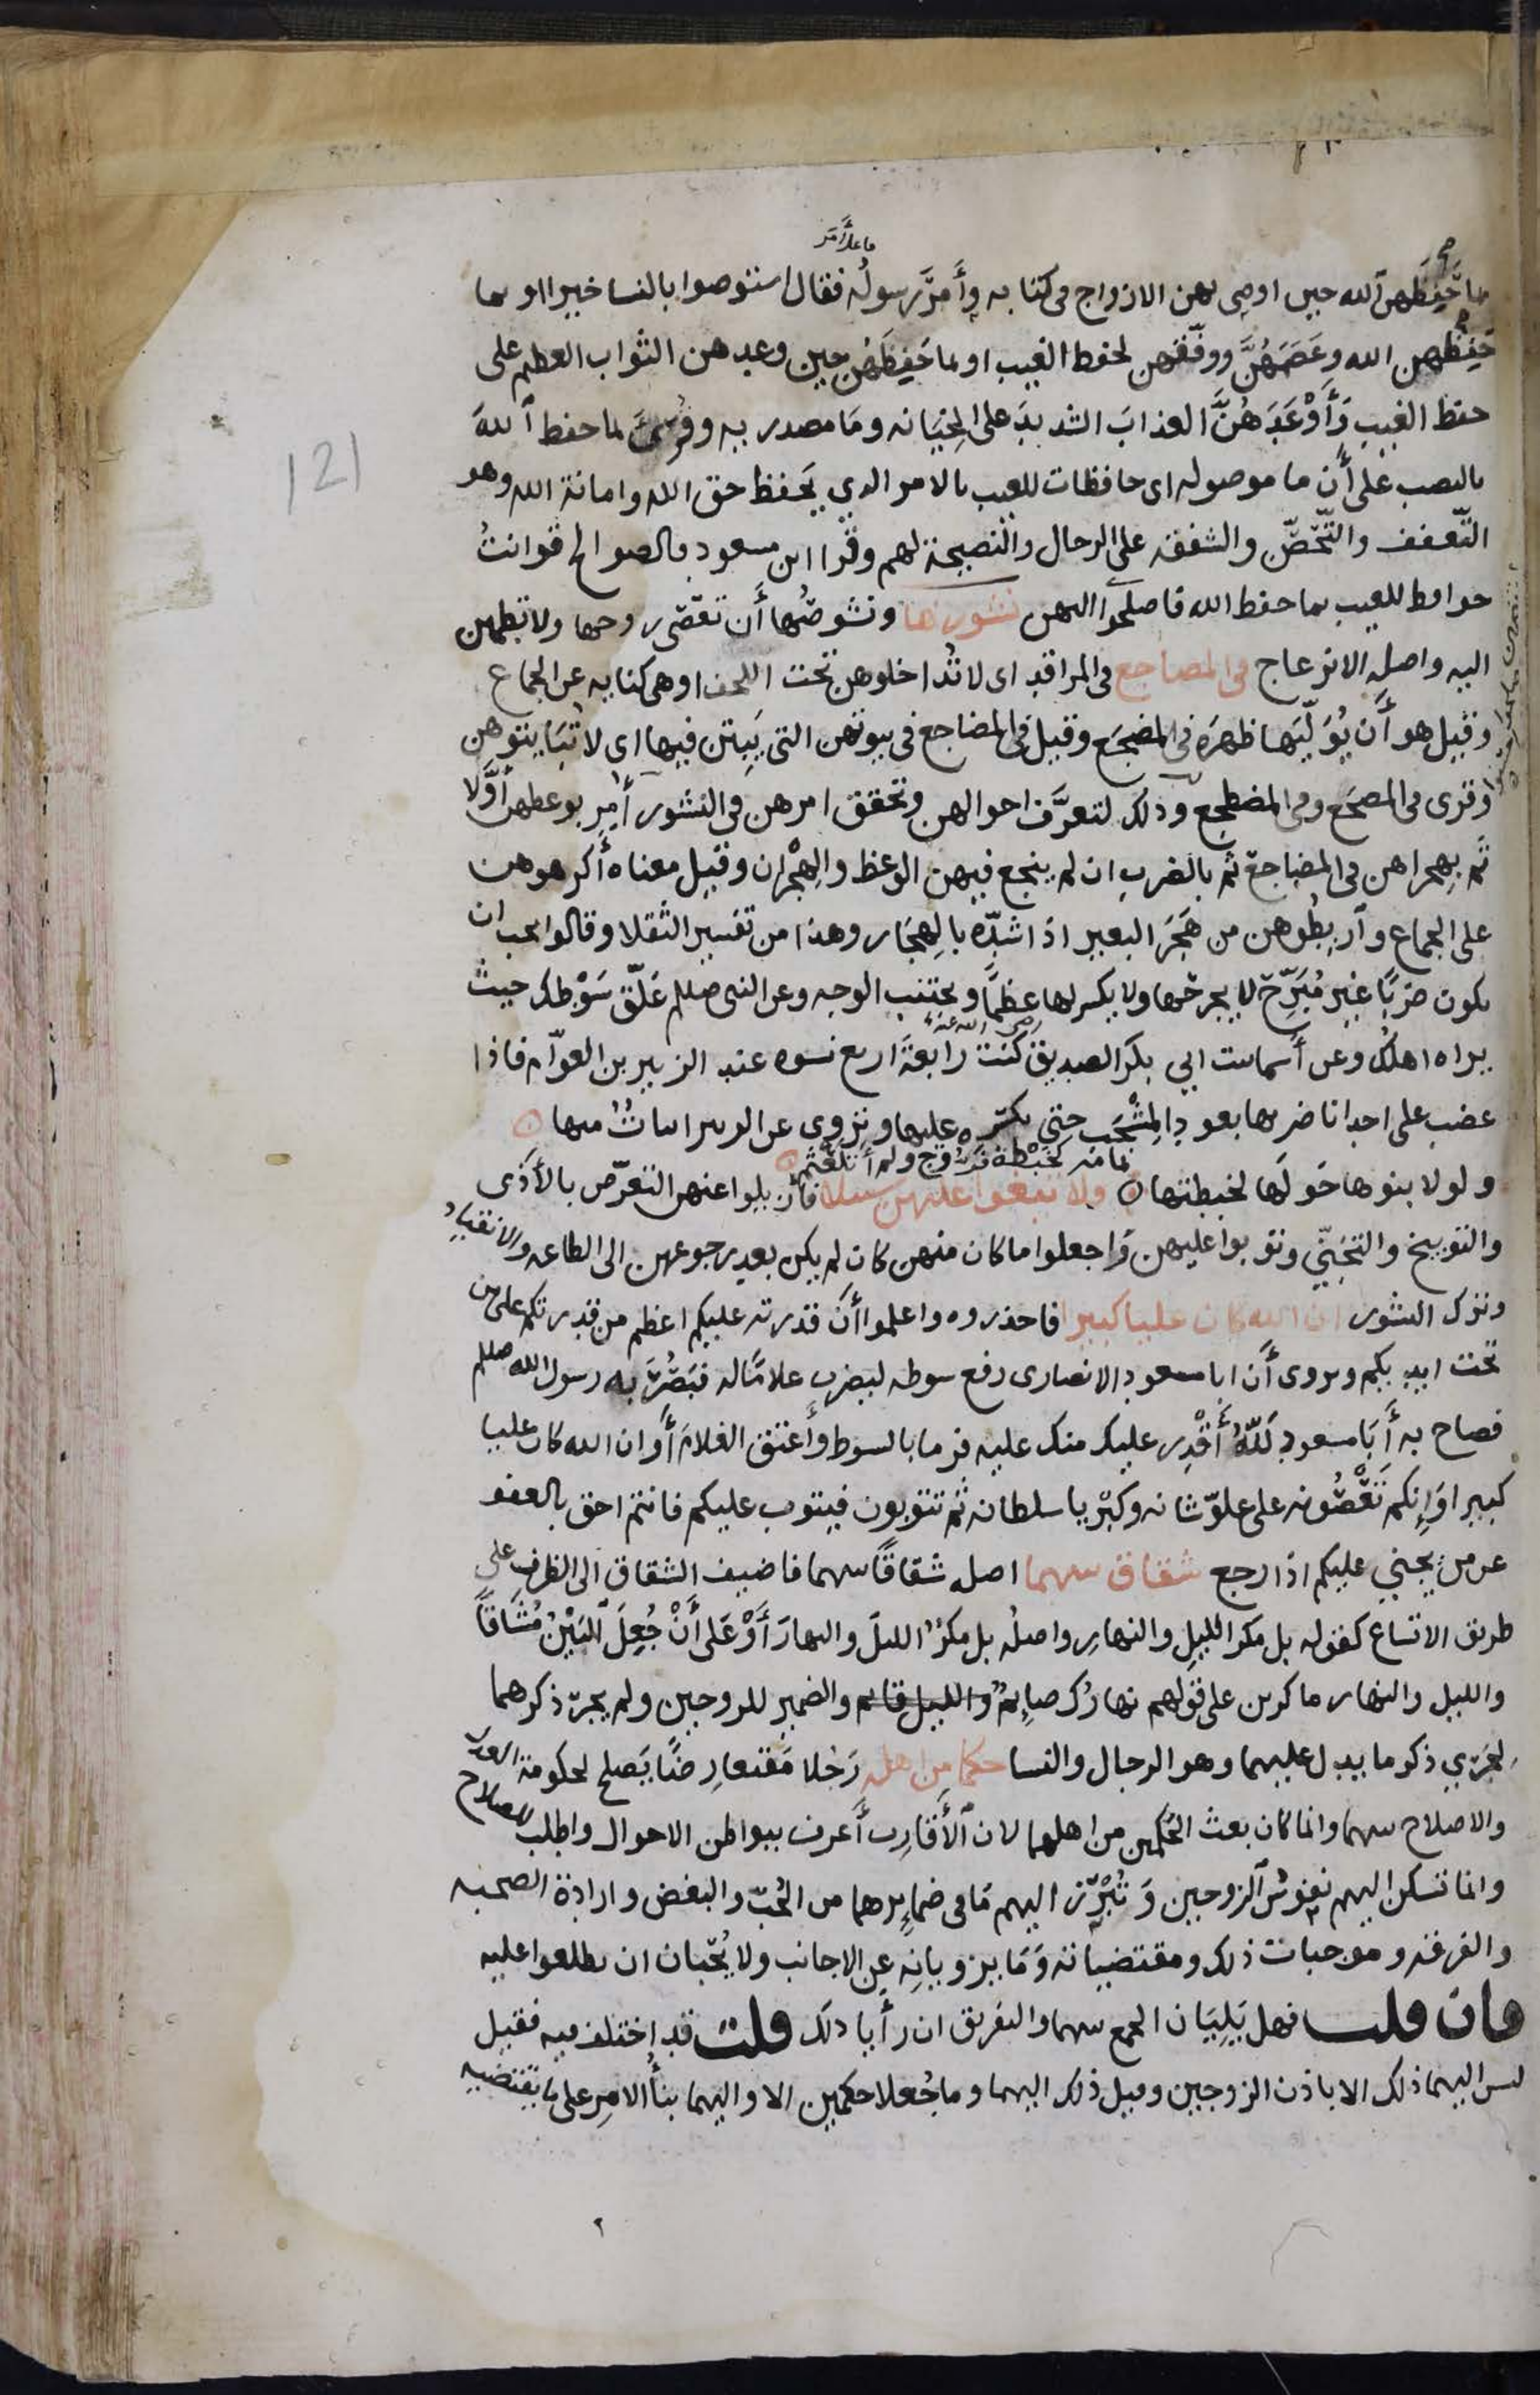 ما عليه أمَر
بما حَفِظَهن الله حين اوصى بهن الازواج في كتابه وأَمَرَ رسولُه فقال استوصوا بالنسا خيرا او بما
حَفِظَهن الله وعَصَمَهُنَّ ووفّقهن لحفظ الغيب او بما حَفِظَهُن حين وعدهن الثواب العظيم على
حفظ الغيب وَأَوْعَدَهُنَّ العذابَ الشديدَ على الخِيَانه ومَا مصدريه وقُرئَ بما حفظ اللهَ
بالنصب على أَن ما موصوله اى حافظات للغيب بالامر الدي يَحفظ حق الله وامانة الله وهو
التّعفف والتّحَصّن والشفقه على الرجال والنصيحة لهم وقرا ابن مسعود فالصوالح قوانتُ
حوافظ للغيب بما حفظ الله فاصلحُوا اليهن نشوزها ونشوصُها أَن تعصى زوجها ولا تطمئن
اليه واصله الانزعاج في المضاجع في المراقد اى لا تُداخلوهن تحت اللحف او هى كنايه عن الجماع
وقيل هو أَن يُوَلّيَها ظهرَه في المضجَع وقيل في المضاجع في بيوتهن التى يَبِتن فيها اى لا تُبَايتوهن
وقرى في المضجَع وفى المضطجع وذلك لتعرَّف احوالهن وتحقق امرهن في النشوز أُمِر بوعظهن أَوَّلا
ثم بهجرانهن في المضاجع ثم بالضرب ان لم ينجع فيهن الوعظ والهِجْران وقيل معناه أَكرهوهن
على الجماع وآربِطُوهن من هَجَرَ البعير اذا شدّه بالهِجَار وهذا من تفسير الثقلا وقالوا يجب ان
يكون ضربًا غيرَ مُبَرِّح لا يجرحها ولا يكسر لها عظمًا ويجتنب الوجه وعن النبى صللم عَلّق سَوْطك حيث
يراه اهلك وعن أسما بنت ابي بكر الصديق رضى الله عنه كنتُ رابعةَ اربع نسوه عند الزبير بن العوّام فاذا
غضب على احدانا ضربها بعود المِشْجَب حتى يكسّره عليها ويُروى عن الزبير ابياتٌ منها
ولولا بنوها حَولَها لخبطتها ولا تبغوا عليهن سبيلا فأزيلوا عنهن التعرّض بالأَذى
كخبطة فَرّوج ولم أتلعثم
والتوبيخ والتجَنّي وتوبوا عليهن وَاجعلوا ما كان منهن كان لم يكن بعد رجوعهن الى الطاعه والانقيادِ
وترك النشوز ان الله كان عليا كبيرا فاحذروه واعلموا أَنّ قدرته عليكم اعظم من قدرتكم على من
تحت ايديكم ويروى أَن ابا مسعود الانصارى رفع سوطه ليضرب غلامًا له فبَصُرَ به رسول الله صللم
فصاح به أَبَا مسعود لَلّهُ أَقْدر عليك منك عليه فرما بالسوط وأَعتق الغلامَ أَو ان الله كان عليا
كبيرا وَإِنكم تَعْصُونه على علوّ شانه وكِبْريا سلطانه ثم تتوبون فيتوب عليكم فانتم احق بالعفو
عن من يجني عليكم اذا رجع شقاق بينهما اصله شقاقًا بينهما فاضيف الشقاق الى الظرف على
طريق الاتساع كقوله بل مَكرُ الليلِ والنهارِ واصلُه بل مكرٌ الليلَ والنهارَ أَوْ عَلى أَنْ جُعِلَ البَيْنُ مُشَاقًّا
والليل والنهار ماكرين على قولهم نهارُك صايِمٌ والليل قايم والضمير للزوجين ولم يجرِ ذكرهما
لِجَرْيِ ذكر ما يدل عليهما وهو الرجال والنسا حكما من اهله رَجُلا مَقنعا رِضًا يَصلح لحكومة العدل
والاصلاح بينهما وانما كان بعث الحَكَمين من اهلهما لان الأَقارِب أَعرف ببواطن الاحوال واطلب للصلاح
وانما تسكن اليهم نفوسُ الزوجين وَتُبْرِز اليهم مَا فى ضمايرهما من الحُبّ والبغض وارادة الصحبه
والفرقه وموجبات ذلك ومقتضياته وَمَا يزويانِه عن الاجانب ولا يُحبّان ان يطلعوا عليه
فان قلت فهل يَلِيَان الجمع بينهما والتفريق ان رأَيا ذلك قلت قد اختلف فيه فقيل
ليس اليهما ذلك الا باذن الزوجين وقيل ذلك اليهما وما جُعلا حكمين الا واليهما بنأُ الامر على ما يقتضيه
121